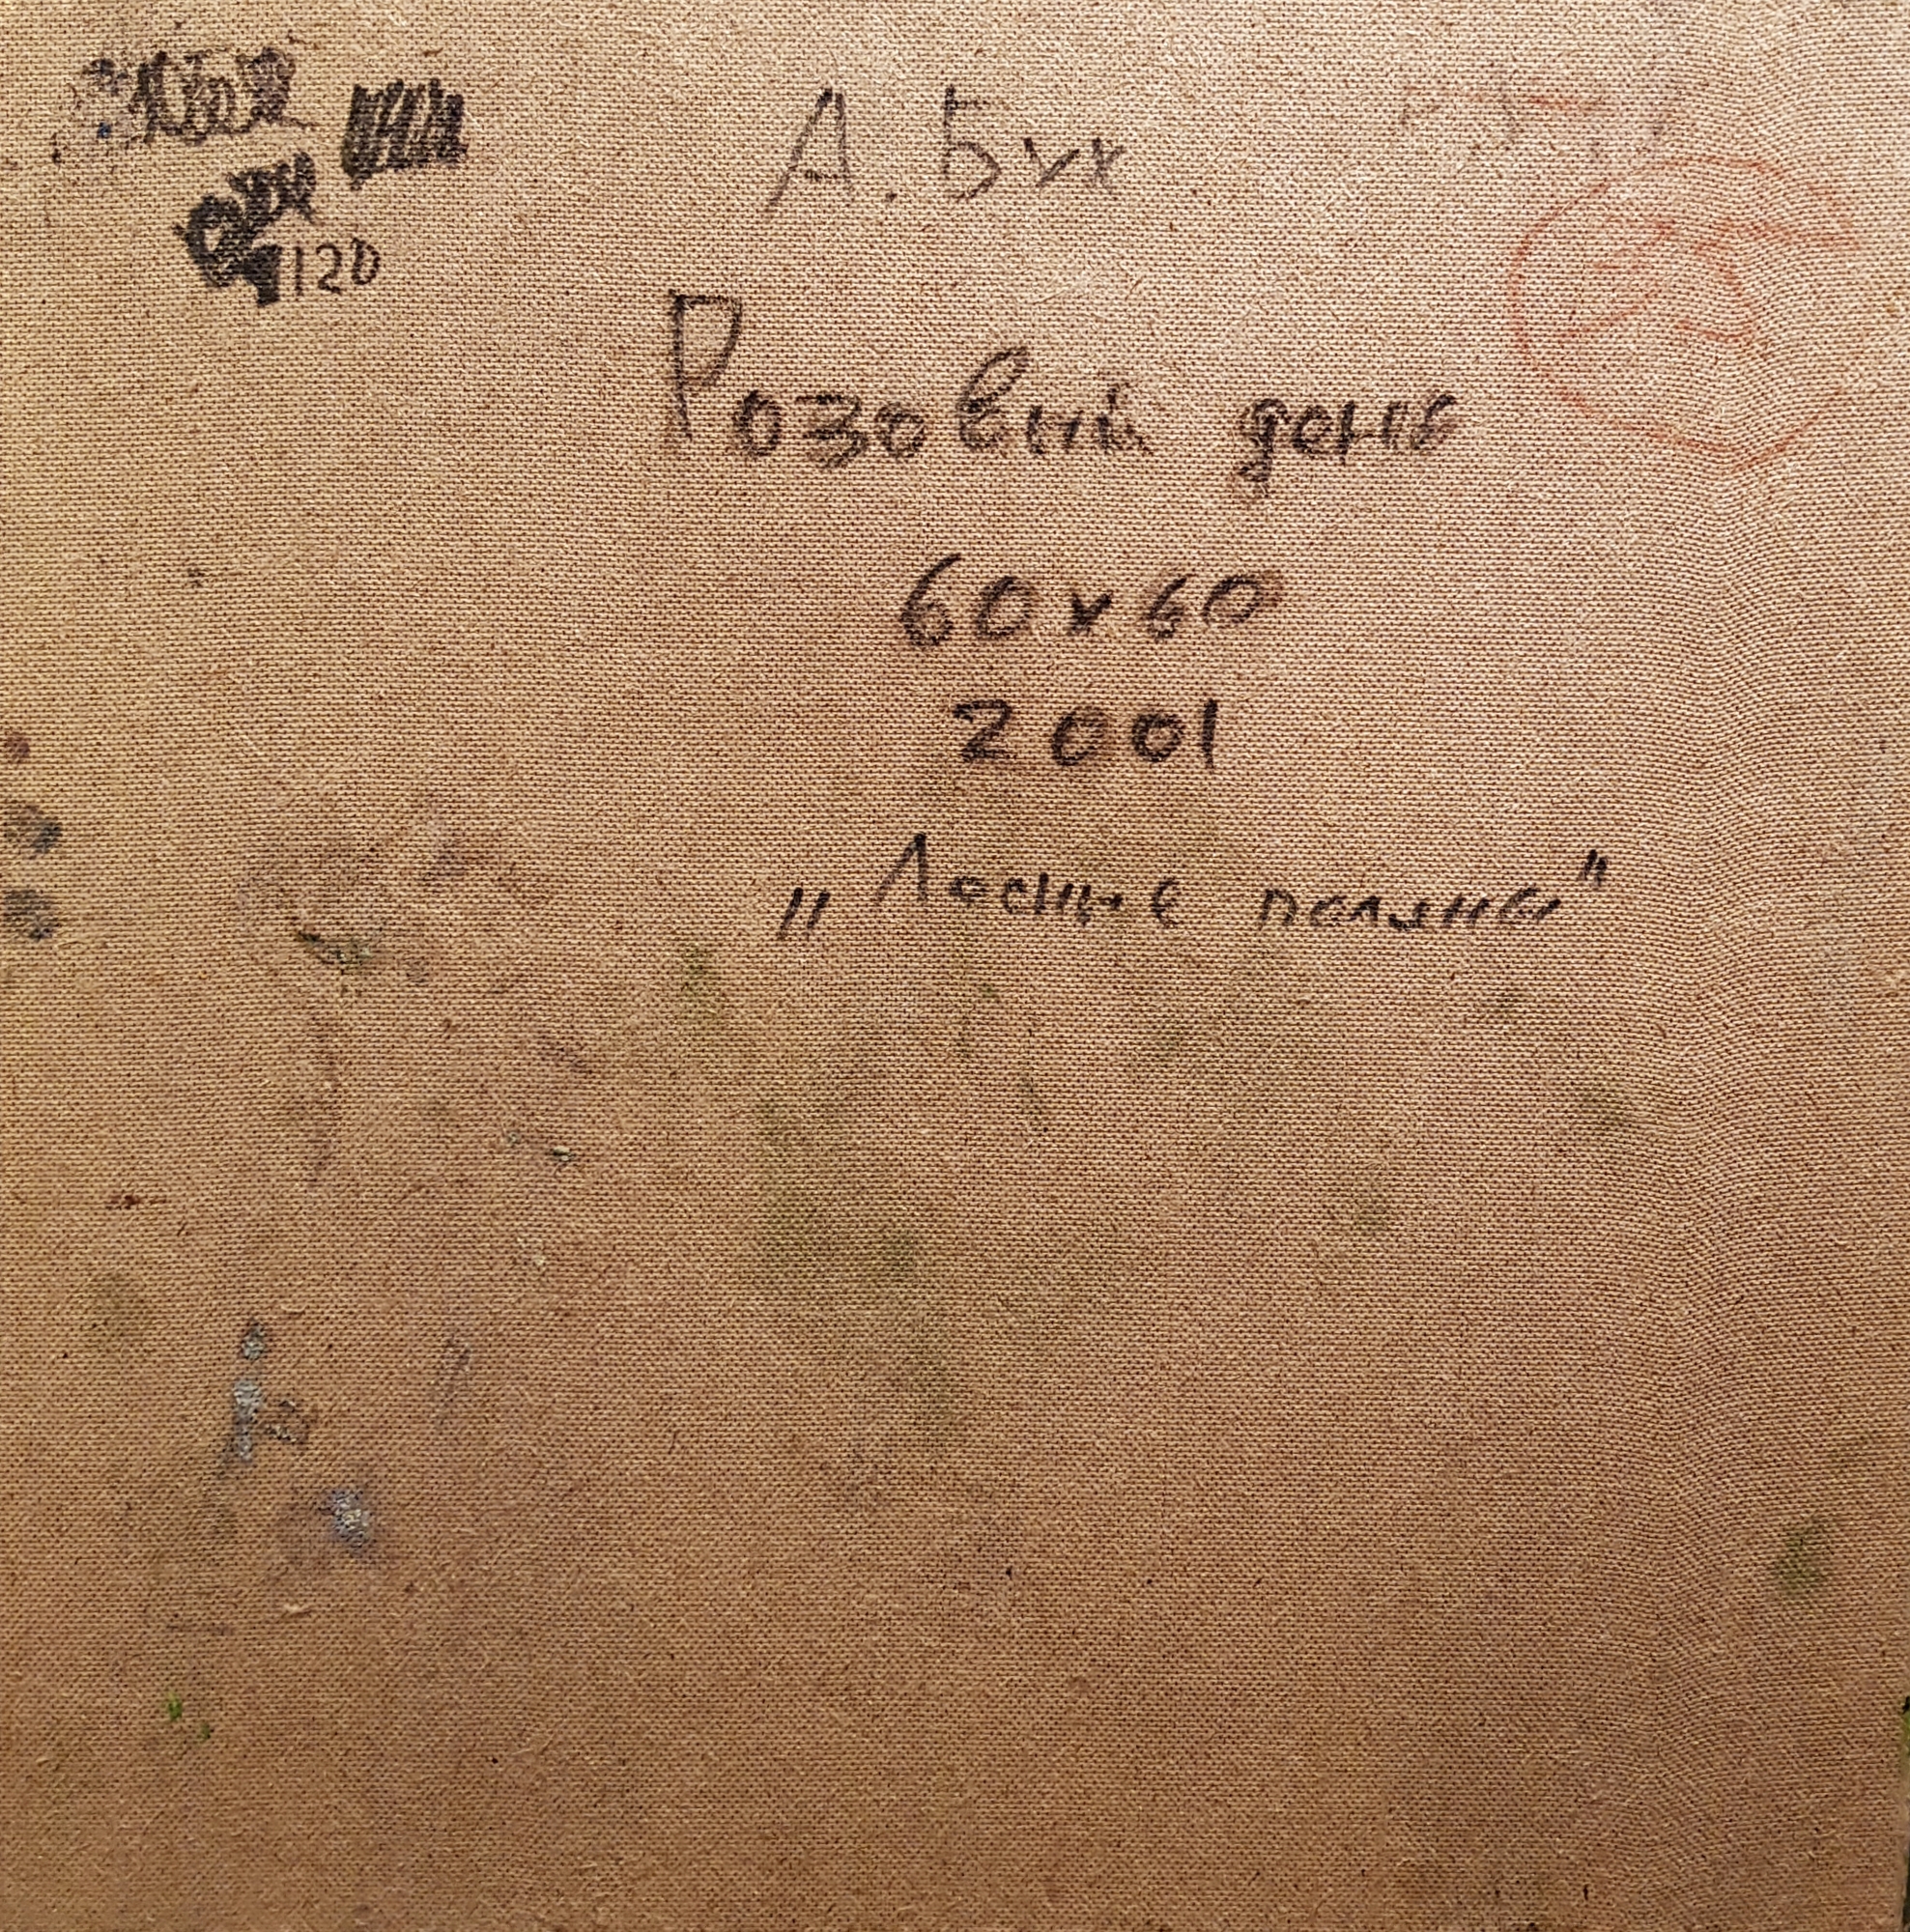 120
А. Бух
Розовый день
60x60
2001
„Лесные поляны"